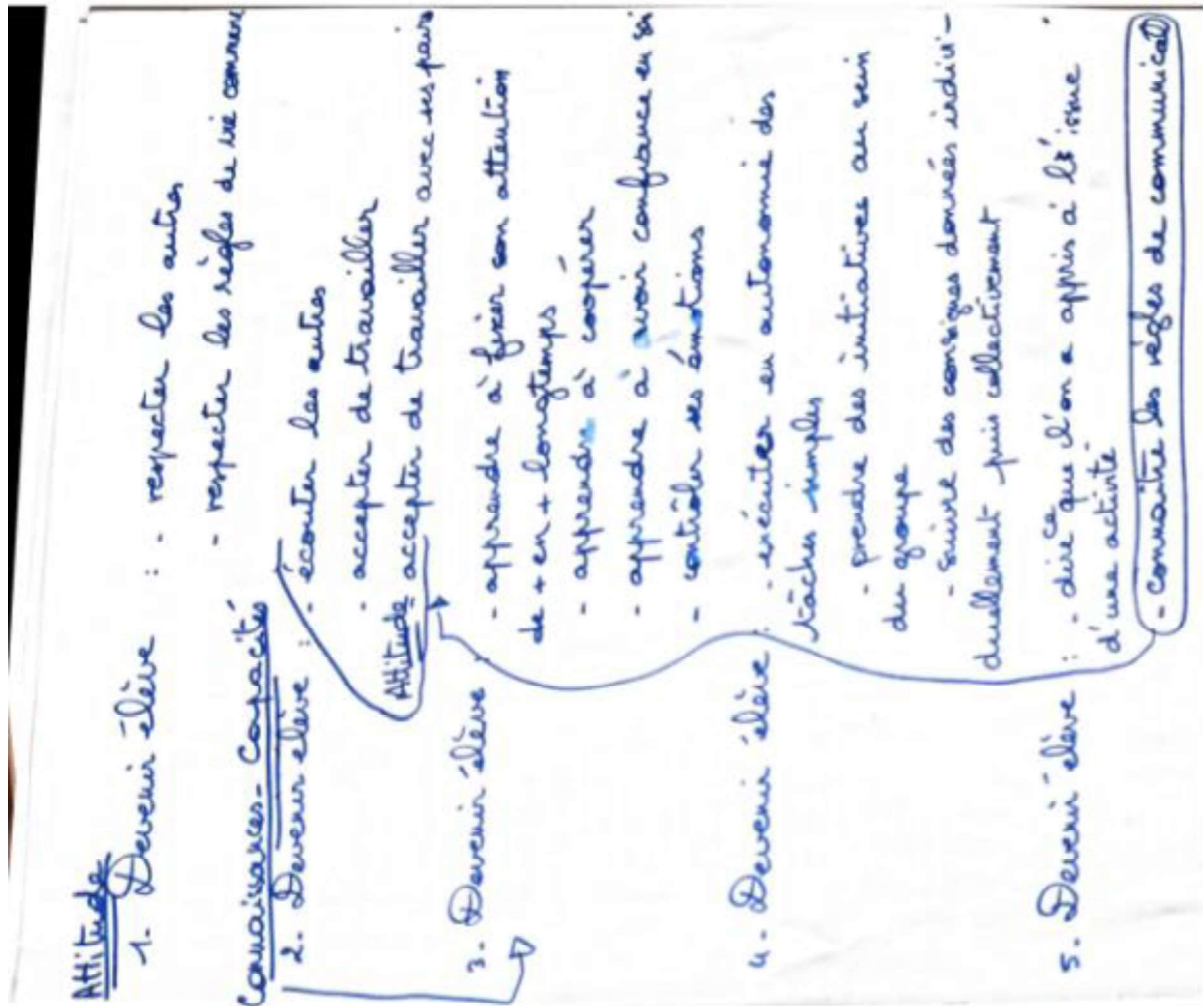 Attitude
1. Devenir élève : - respecter les autres
- respecter les règles de vie commune
Connaissances - Capacités
2. Devenir élève : - écouter les autres
- accepter de travailler
Attitude - accepter de travailler avec ses pairs
3. Devenir élève : - apprendre à fixer son attention
de + en + longtemps
- apprendre à coopérer
- apprendre à avoir confiance en soi
- contrôler ses émotions
4. Devenir élève : - exécuter en autonomie des
tâches simples
- prendre des initiatives au sein
du groupe
- suivre des consignes données indivi-
duellement puis collectivement
5. Devenir élève : - dire ce que l'on a appris à l'issue
d'une activité
- connaître les règles de communicat°